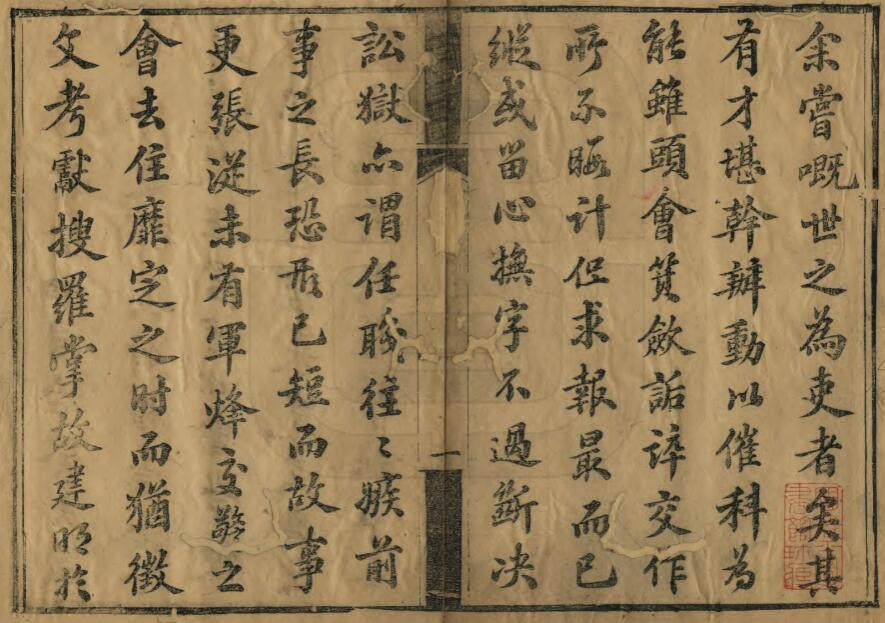 余嘗嘅世之為吏者矣其
有才堪幹辦動以催科為
能雖頭會箕斂詬誶交作
所不暇計但求報最而已
縱或留心撫字不過斷决
訟獄亦謂任職往〻嫉前
事之長恐形已短而故事
更張從未有軍烽交警之
會去住靡定之时而猶徵
文考獻搜羅掌故建明於
一